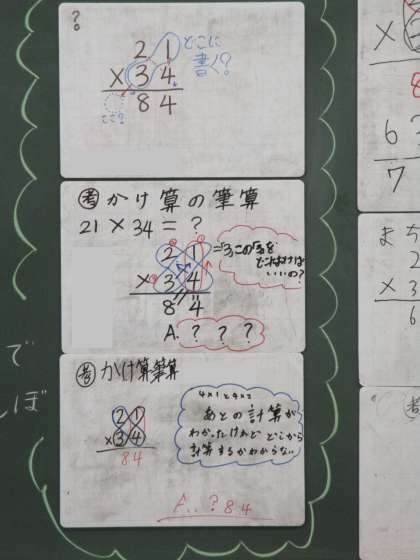 ?
21
×34
84
どこに
書く?
ここ?
考 かけ算の筆算
21×34=?
21
×34
84
A. ? ? ?
いいの?
考 かけ算筆算
21
×34
84
4×1と4×2
あとの計算が
わかったけれど どこから
計算するかわからない
A.. ? 84
で
ぼ
×
8
6?
7
まち
2
×3
6
考